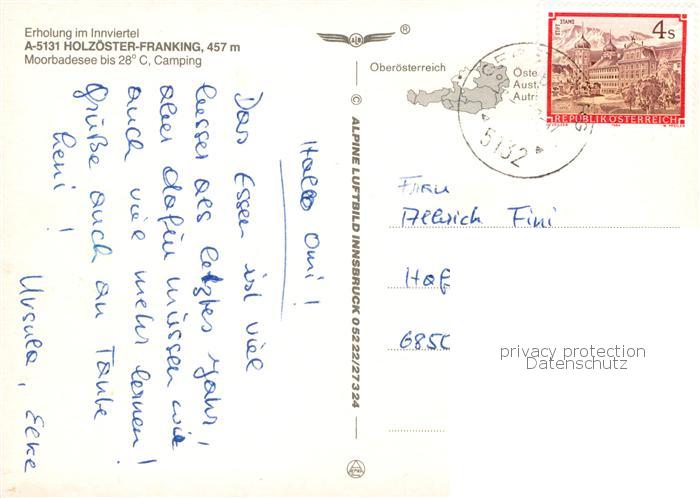 Erholung im Innviertel
A-5131 HOLZÖSTER-FRANKING, 457 m
Moorbadesee bis 28° C, Camping
®
Oberösterreich
Öste
Aust
Autri
STIFT STAMS
4s
REPUBLIK ÖSTERREICH
1984
5132
© ALPINE LUFTBILD INNSBRUCK 05222/27324
Hallo Omi!
Das Essen ist viel
besser als letztes Jahr,
aber dafür müssen wir
auch viel mehr lernen!
Grüße auch an Tante
Heni!
Ursula, Elke
Frau
Fini
Hag
6850
privacy protection
Datenschutz